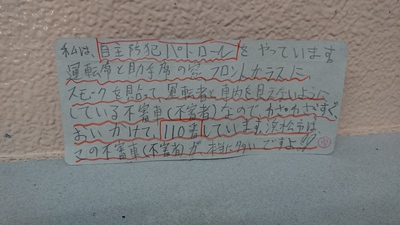 私は、自主防犯パトロールをやっています
運転席と助手席の窓フロントガラスに、
スモークを貼って、運転者と車内を見えないように
している不審車(不審者)なので、わざわざすぐ
おいかけて、110番しています。浜松市は
この不審車(不審者)が、本当に多いですよ!!